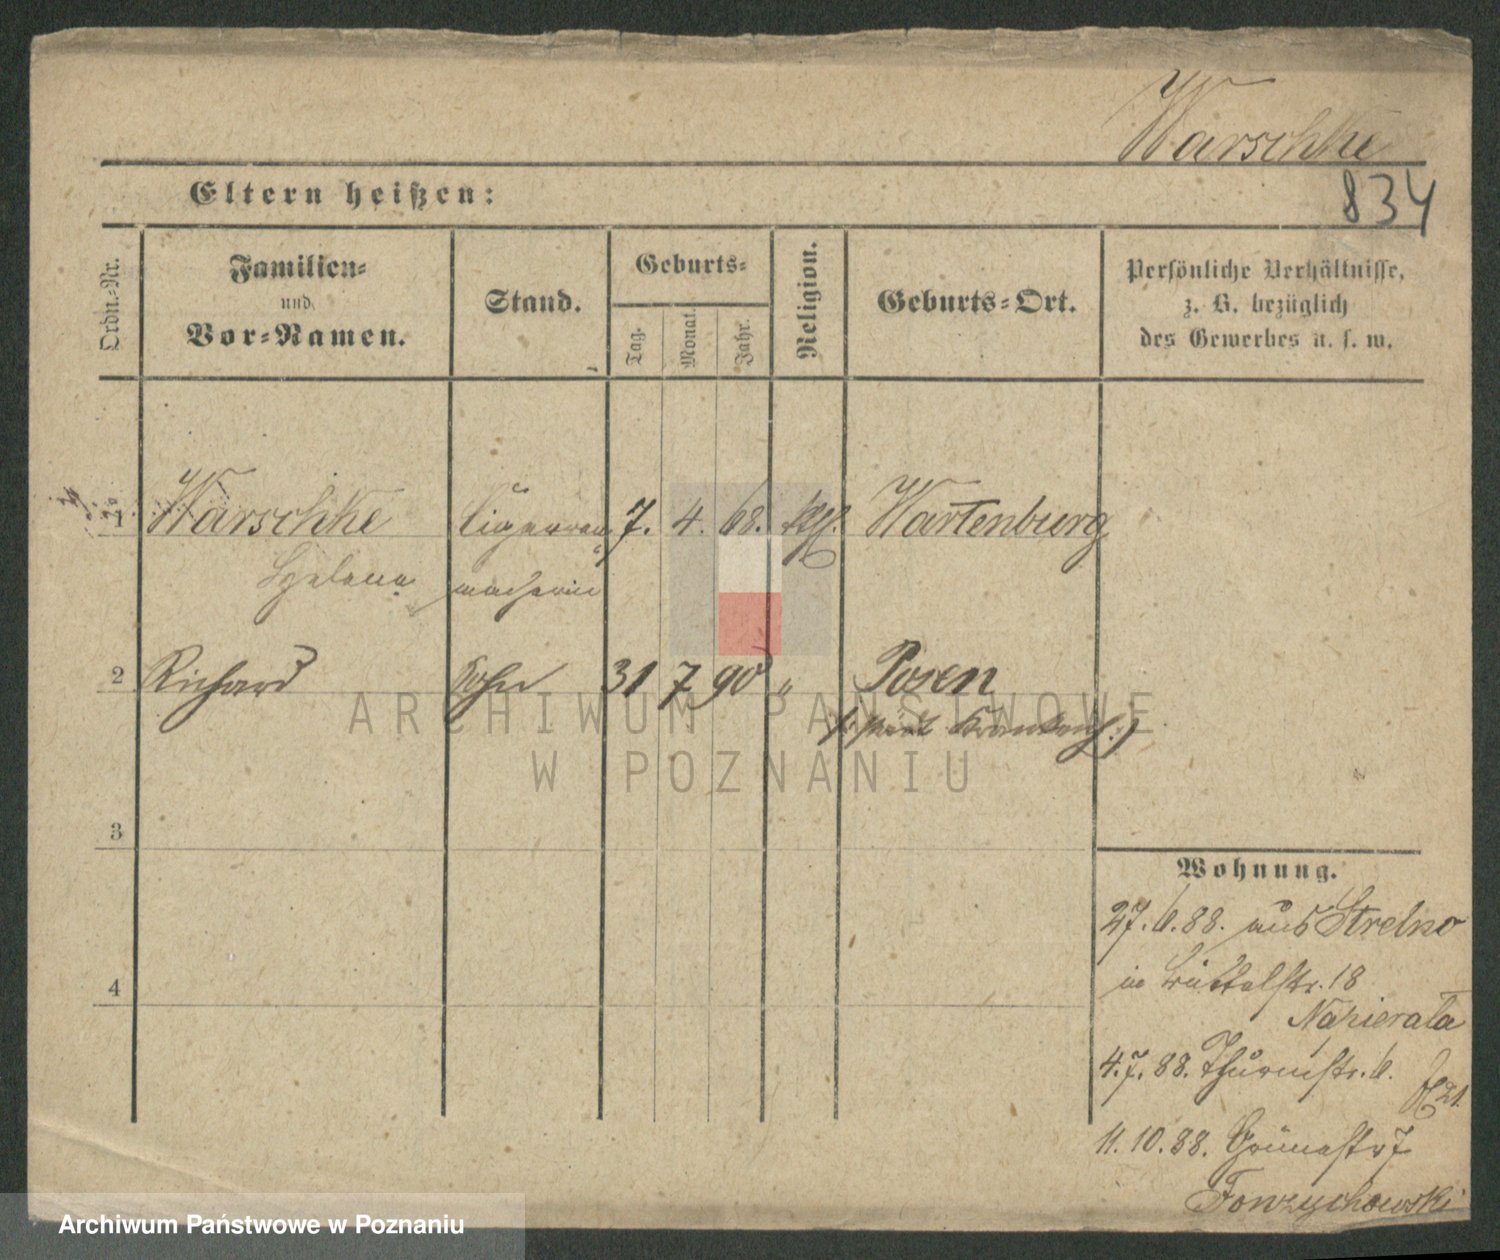 Warschke
834
Eltern heißen:
Ordn.-Nr.
Familien-
und
Vor-Namen.
Stand.
Geburts-
Tag.
Monat.
Jahr.
Religion.
Geburts-Ort.
Persönliche Verhältnisse,
z. B. bezüglich
des Gewerbes u. s. w.
1 Warschke Cigarren 7. 4. 68. Wartenburg
Helena macherin
2 Richard Sohn 31 7 90 " Posen
3
4
Wohnung.
27.6.88. aus Strelno
in Büttelstr. 18
Napierala
4.7.88. Thurmstr. 6.
21.
11.10.88. Grünestr 7
ARCHIWUM PAŃSTWOWE
W POZNANIU
Archiwum Państwowe w Poznaniu